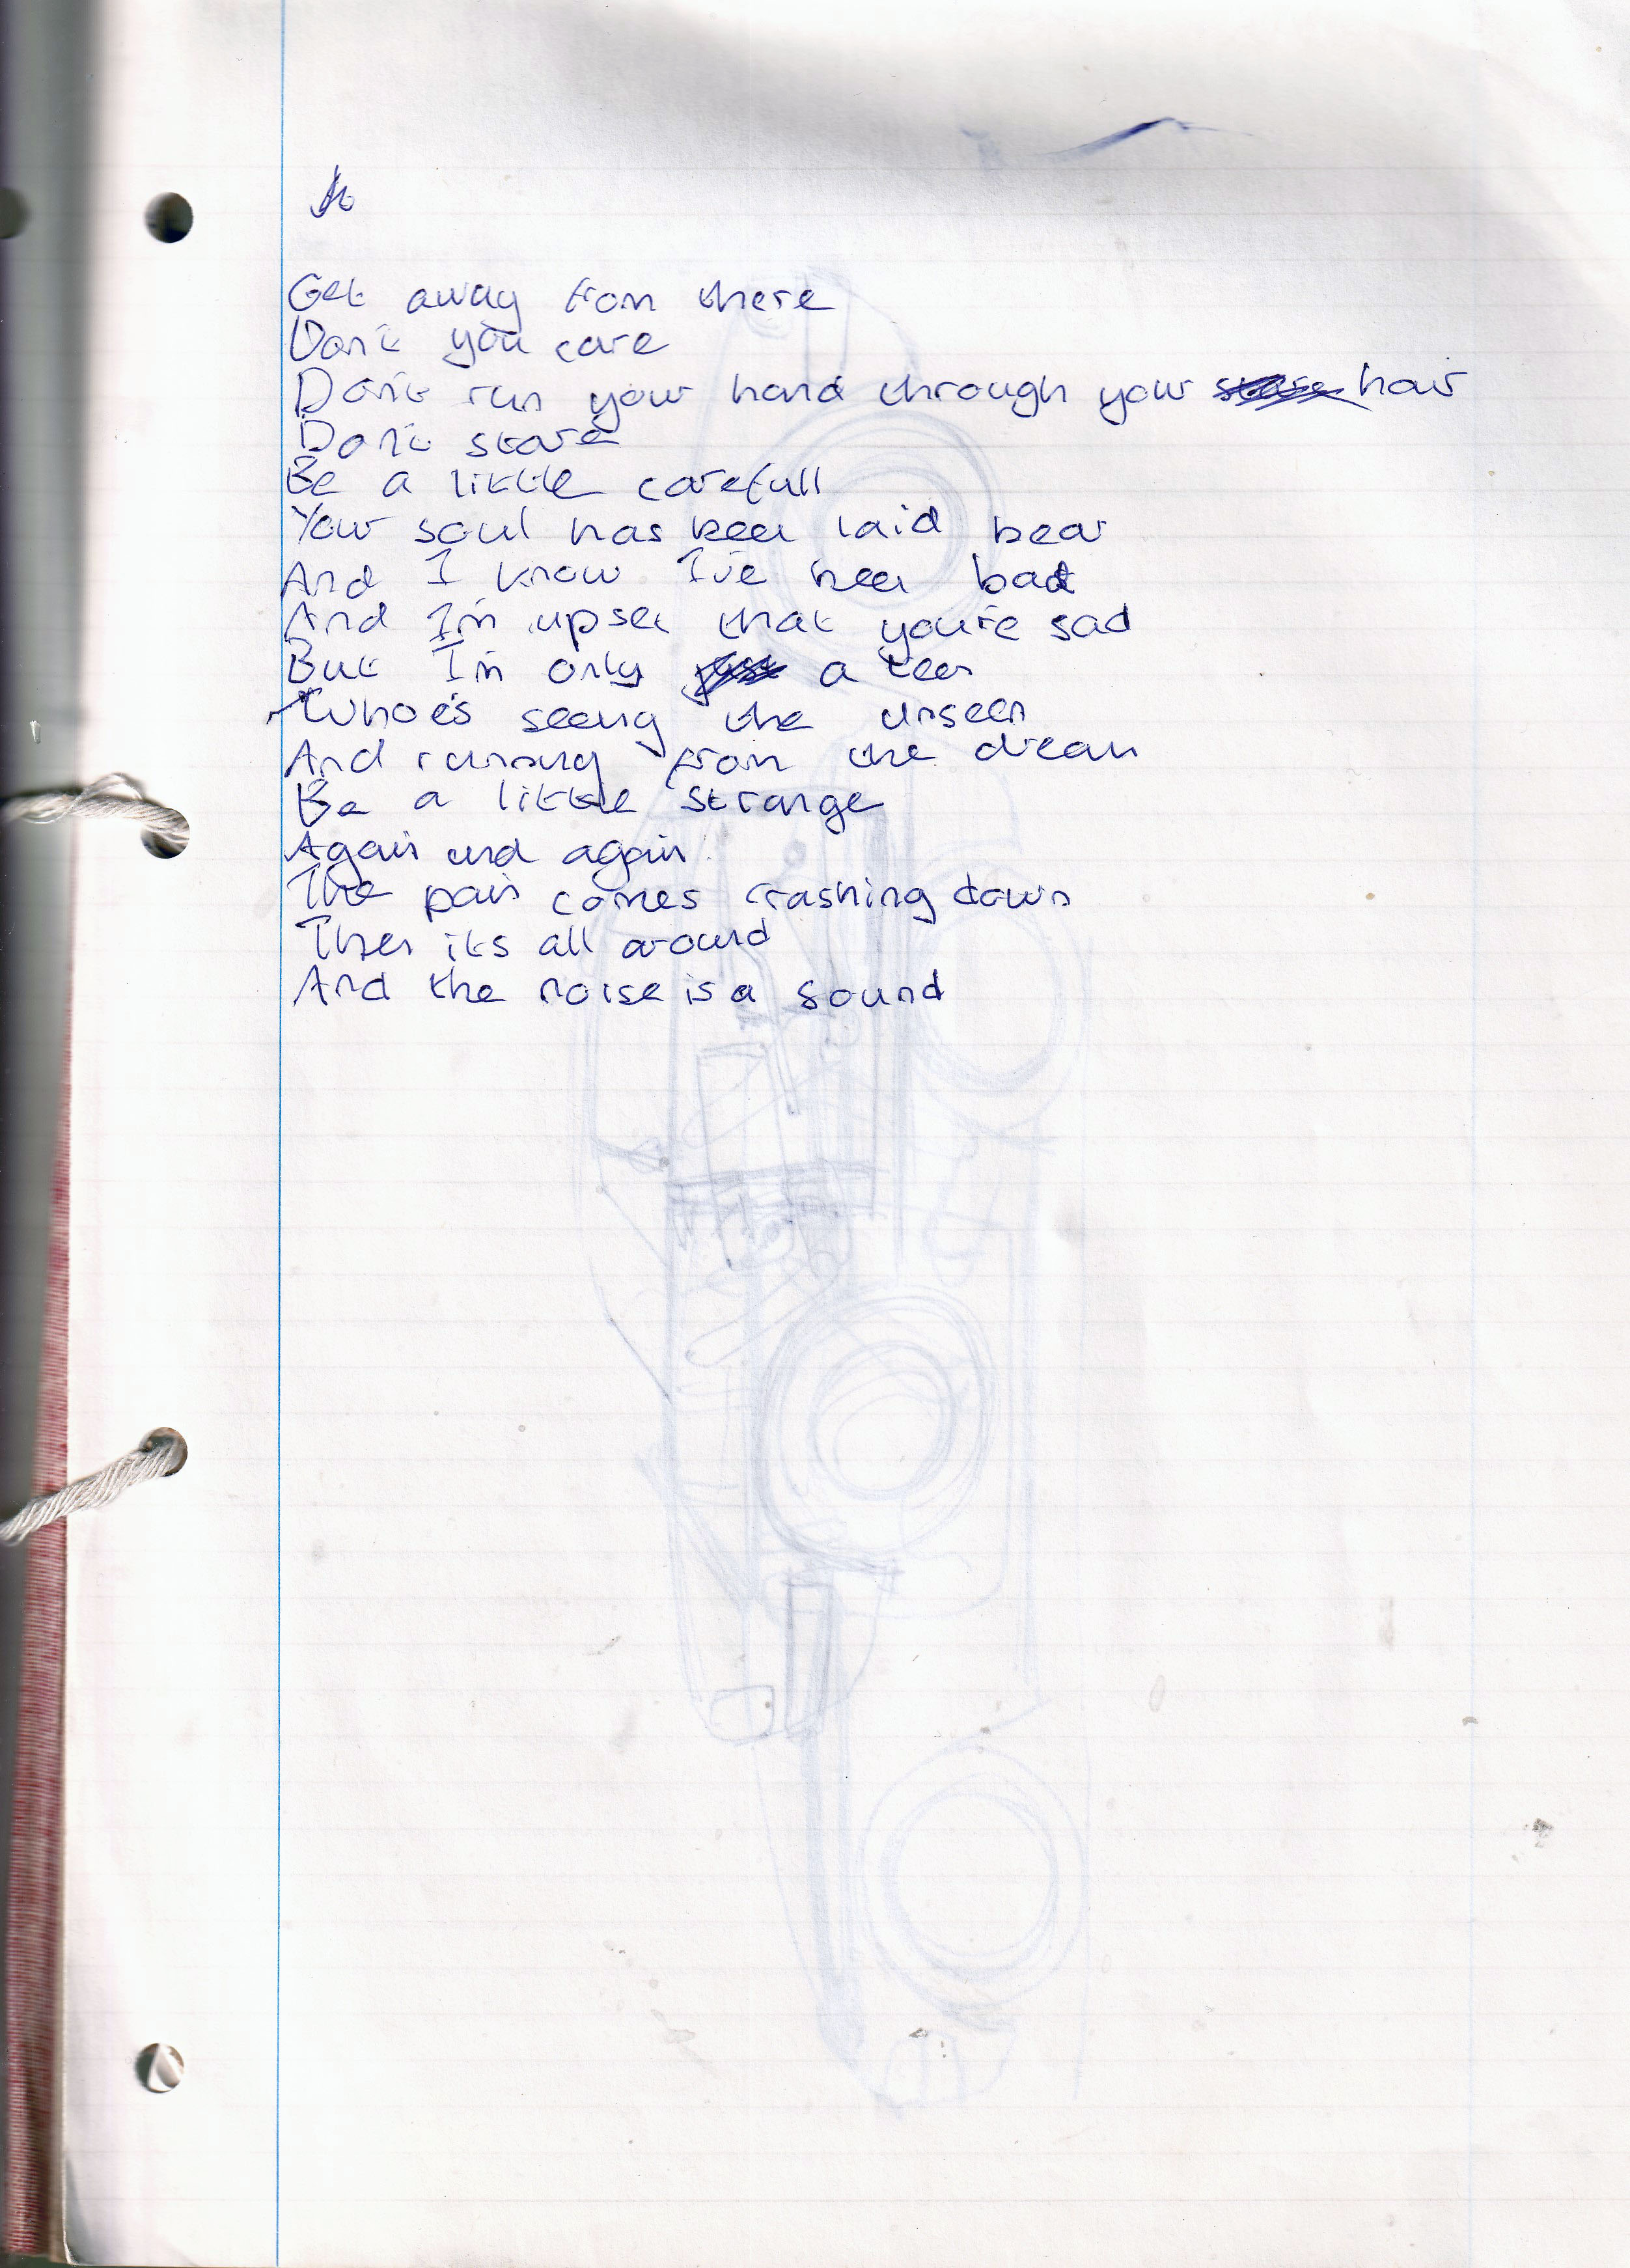 Get away from there
Don't you care
Don't run your hand through your stare hair
Don't stare
Be a little carefull
Your soul has been laid bear
And I know I've been bad
And I'm upset that you're sad
But I'm only just a teen
Whoe's seeing the unseen
And running from the dream
Be a little strange
Again and again
The pain comes crashing down
Then its all around
And the noise is a sound